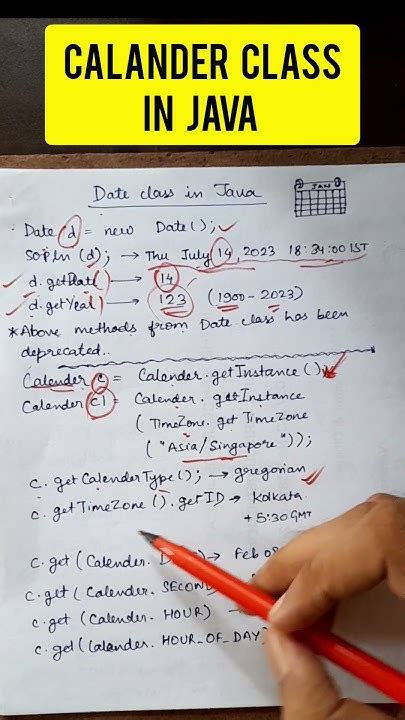 CALANDER CLASS
IN JAVA
Date class in Java
JAN
Date d = new Date();
SOPln (d); → Thu July 14 2023 18:34:00 IST
d.getDate() → 14
d.getYear() → 123 (1900-2023)
*Above methods from Date class has been
deprecated..
Calender c = Calender.getInstance();
Calender c1 = Calender.getInstance
(TimeZone.get TimeZone
("Asia/Singapore"));
c.getCalenderType(); → gregorian
c.getTimeZone().getID → Kolkata
+5:30 GMT
c.get (Calender. → Feb 08
c.get (Calender. SECOND
c.get (Calender. HOUR) →
c.get (Calander. HOUR_OF_DAY)